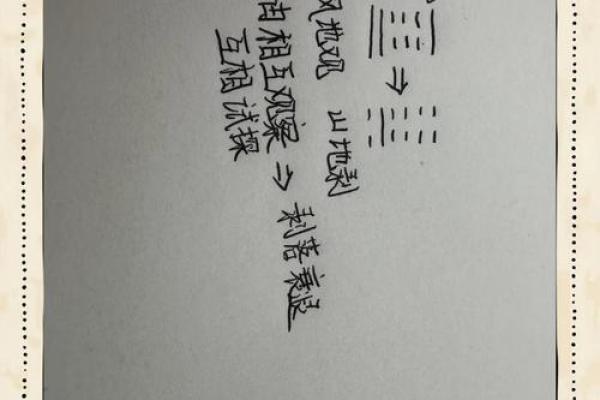 风地观 山地剥
由相互观察 → 剥落衰退
互相试探